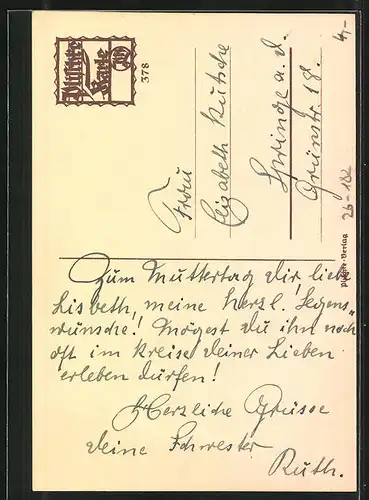 Plugfre
Karte
378
Frau
Elisabeth Kutsche
Springe a. D.
Grünstr. 18.
4,-
26-182
Verlag
Zum Muttertag Dir, liebe
Lisbeth, meine herzl. Segens-
wünsche! Mögest Du ihn noch
oft im Kreise Deiner Lieben
erleben dürfen!
Herzliche Grüsse
Deine Schwester
Ruth.